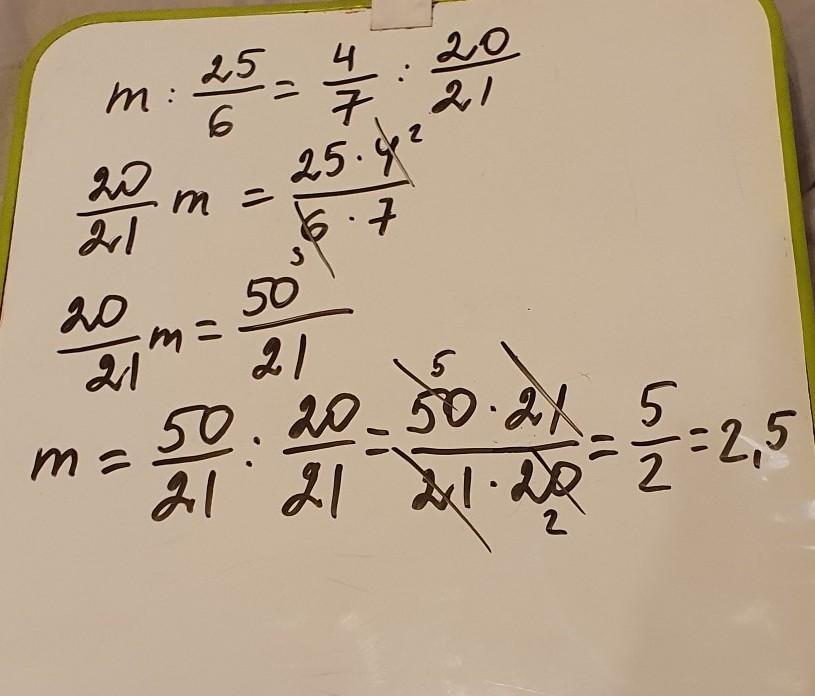 m : 25/6 = 4/7 : 20/21
20/21 m = 25 · 4 2 / 6 · 7 3
20/21 m = 50/21
m = 50/21 : 20/21 = 5 50 · 21 / 21 · 20 2 = 5/2 = 2,5